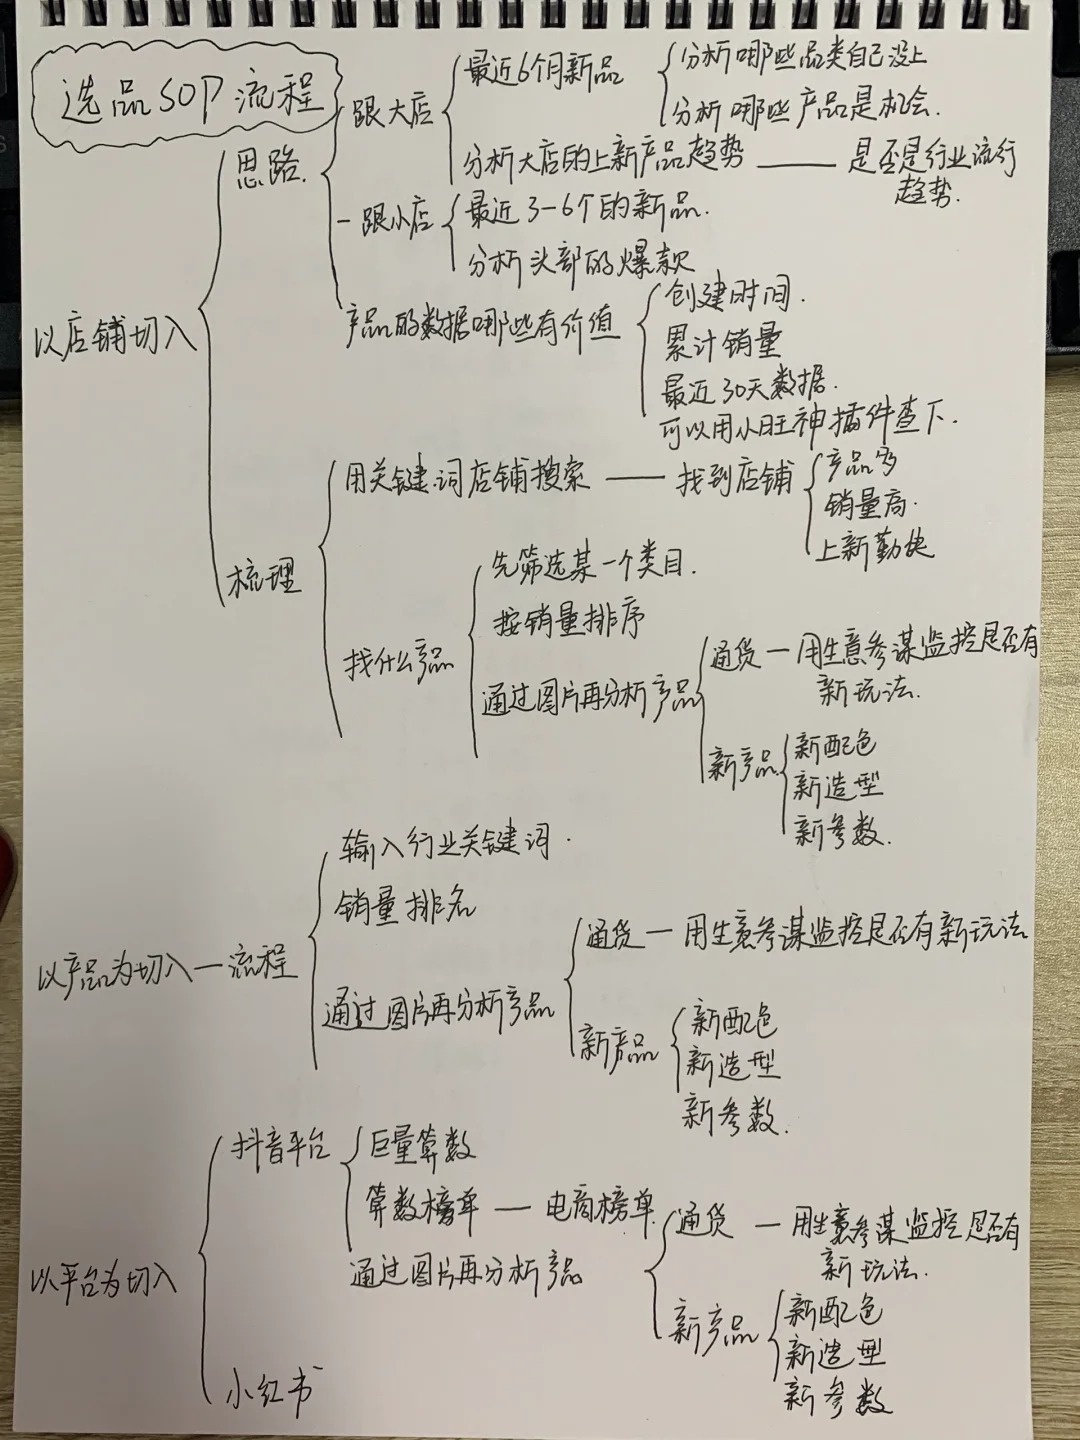 选品SOP流程
以店铺切入
思路.
跟大店
最近6个月新品
分析哪些品类自己没上
分析哪些产品是机会.
分析大店的上新产品趋势 —— 是否是行业流行
趋势.
-跟小店
最近3-6个的新品.
分析头部的爆款
产品的数据哪些有价值
创建时间.
累计销量
最近30天数据.
可以用小旺神插件查下.
梳理
用关键词店铺搜索 —— 找到店铺
产品多
销量高.
上新勤快
找什么产品
先筛选某一个类目.
按销量排序
通过图片再分析产品
通货 — 用生意参谋监控是否有
新玩法.
新产品
新配色
新造型
新参数.
以产品为切入 — 流程
输入行业关键词.
销量排名
通过图片再分析产品
通货 — 用生意参谋监控是否有新玩法
新产品
新配色
新造型
新参数.
以平台为切入
抖音平台
巨量算数
算数榜单 — 电商榜单
通过图片再分析产品
通货 — 用生意参谋监控是否有
新玩法.
新产品
新配色
新造型
新参数
小红书